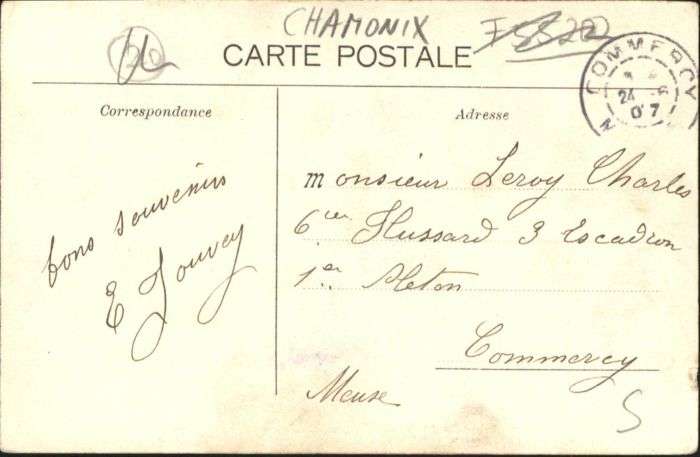 CHAMONIX
CARTE POSTALE
COMMERCY
24
07
Correspondance
Adresse
bons souvenirs
E Jouvey
Monsieur Leroy Charles
6ier Hussard 3 Escadron
1er Pleton
Commercy
Meuse